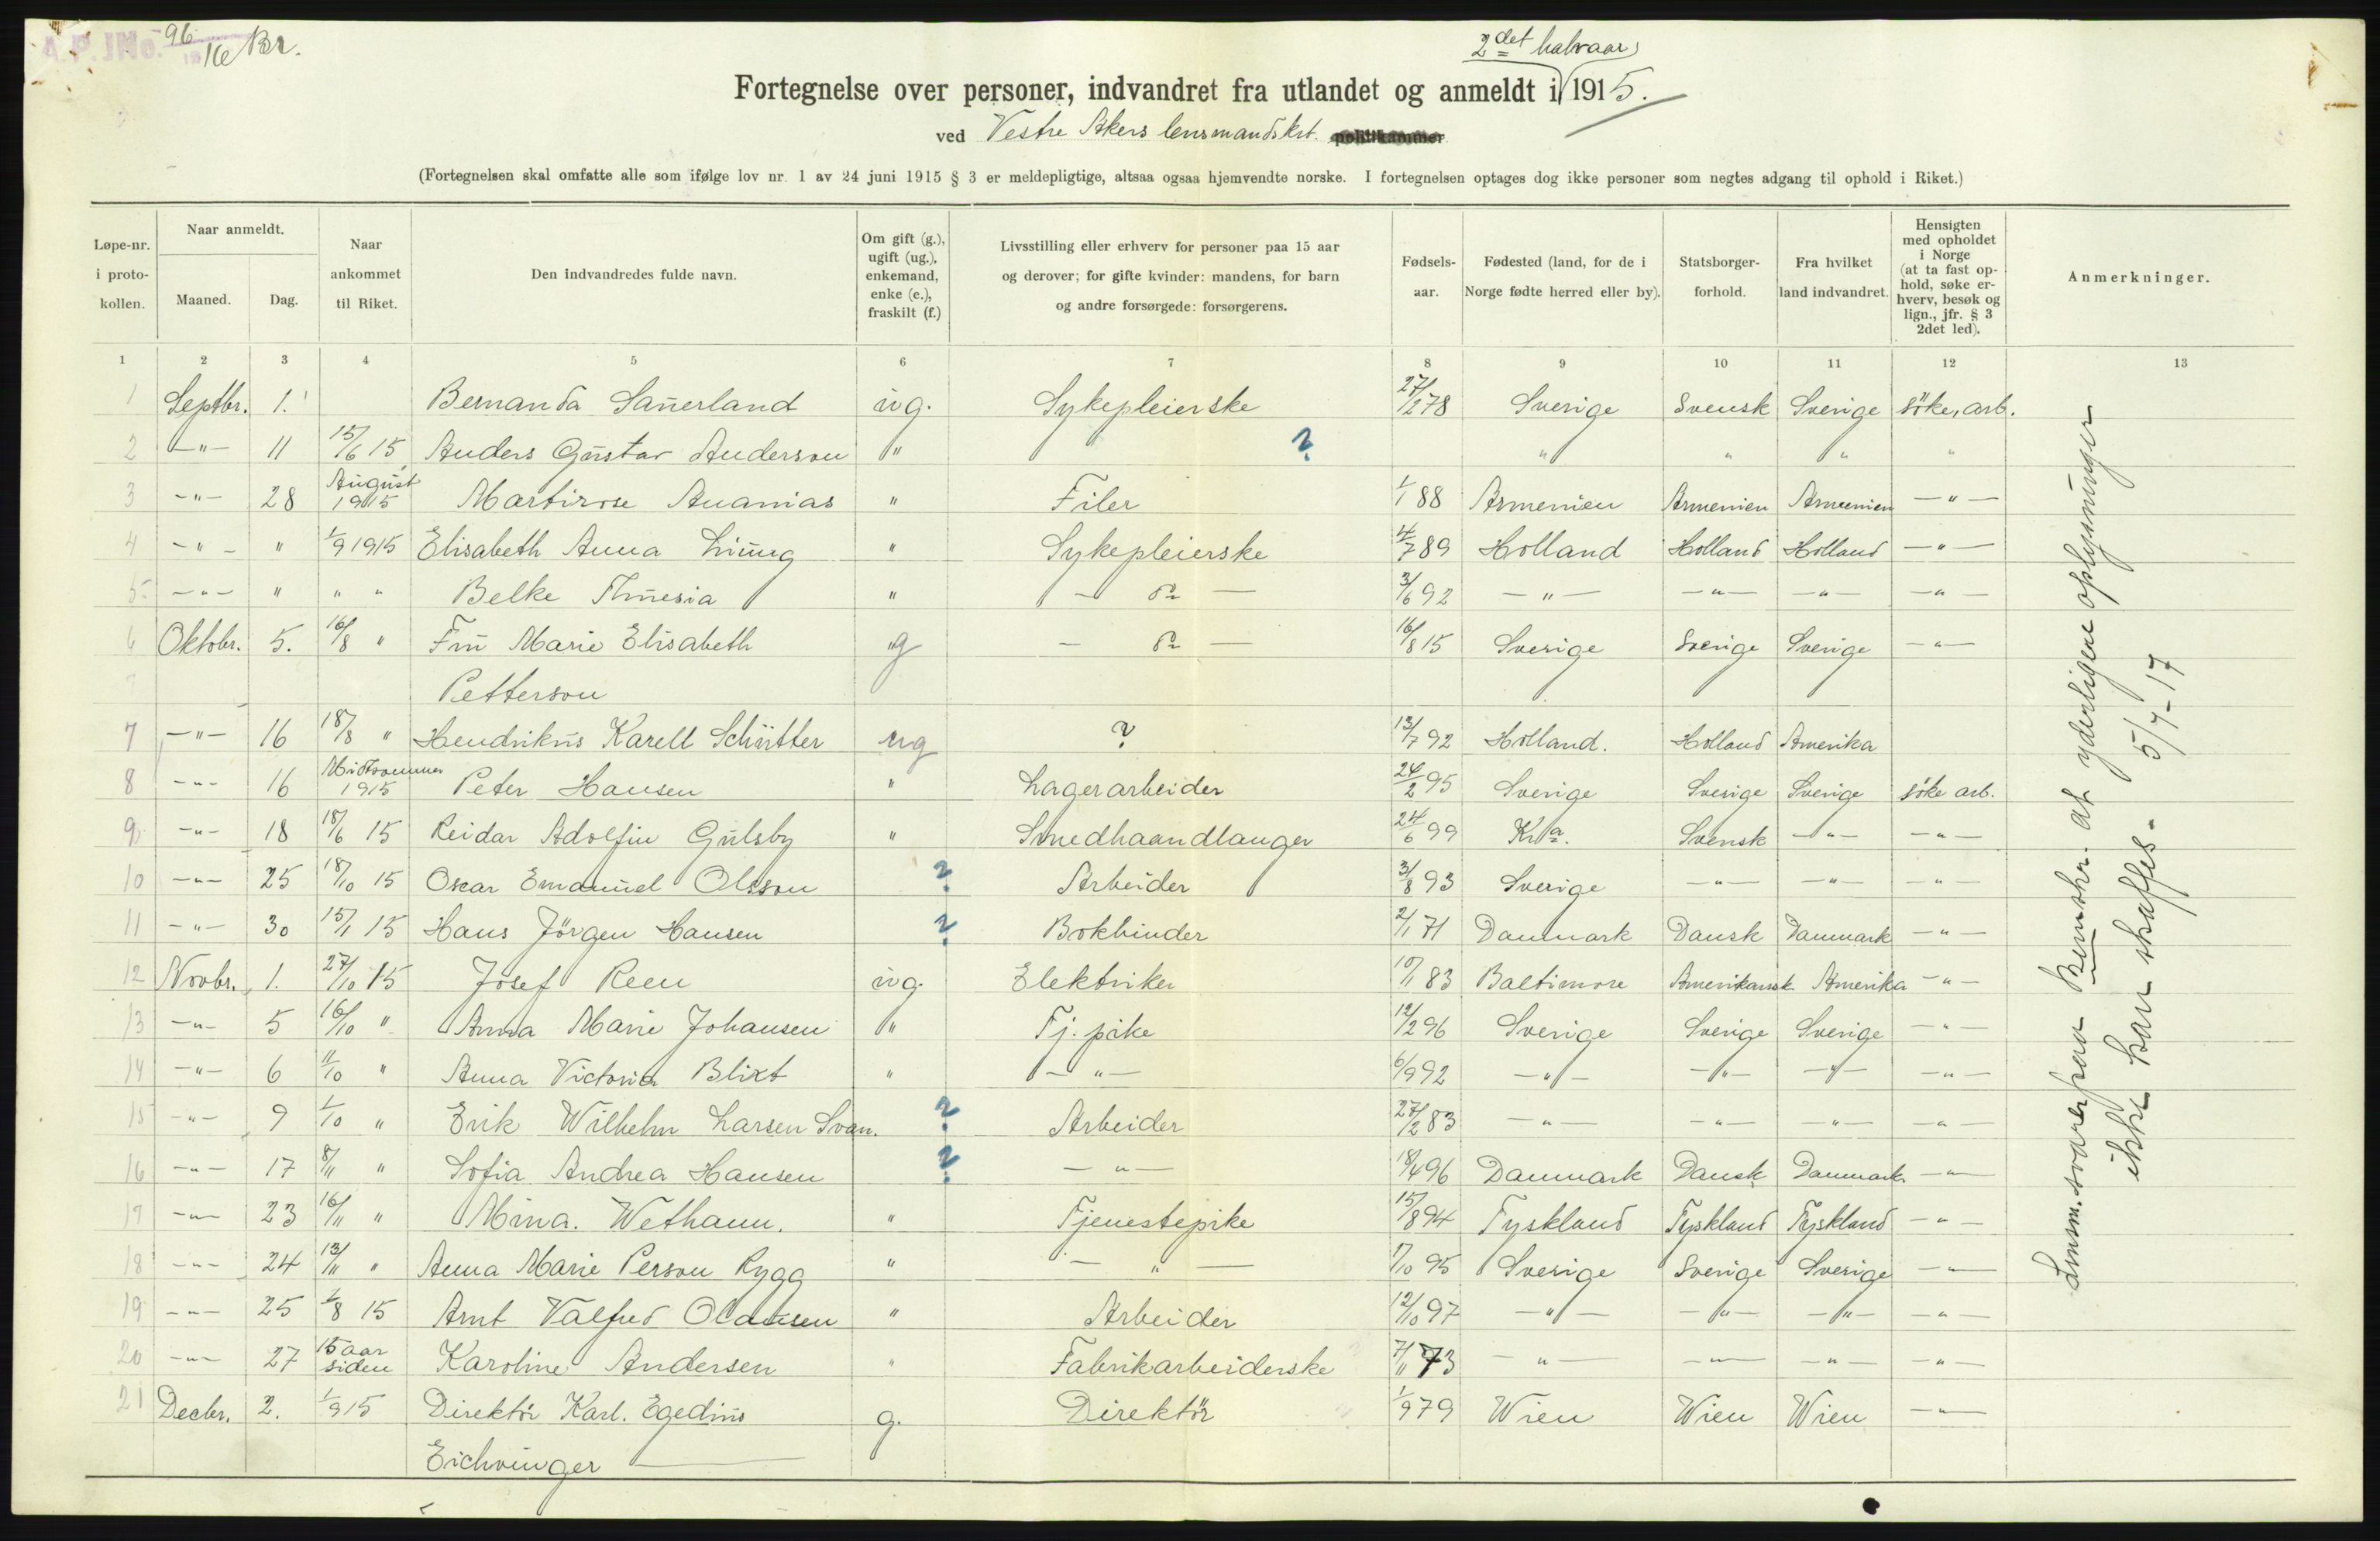 A.P. JNo. 96/1916 Br.
2det halvaar
Fortegnelse over personer, indvandret fra utlandet og anmeldt i 1915.
ved Vestre Akers lensmandskst. politikammer
(Fortegnelsen skal omfatte alle som ifølge lov nr. 1 av 24 juni 1915 § 3 er meldepligtige, altsaa ogsaa hjemvendte norske. I fortegnelsen optages dog ikke personer som negtes adgang til ophold i Riket.)
Løpe-nr. i proto-kollen. Naar anmeldt. Maaned. Dag. Naar ankommet til Riket. Den indvandredes fulde navn. Om gift (g.), ugift (ug.), enkemand, enke (e.), fraskilt (f.) Livsstilling eller erhverv for personer paa 15 aar og derover; for gifte kvinder: mandens, for barn og andre forsørgede: forsørgerens. Fødsels-aar. Fødested (land, for de i Norge fødte herred eller by). Statsborger-forhold. Fra hvilket land indvandret. Hensigten med opholdet i Norge (at ta fast op-hold, søke er-hverv, besøk og lign., jfr. § 3 2det led). Anmerkninger.
1 2 3 4 5 6 7 8 9 10 11 12 13
1 Septbr. 1. Bernanda Sauerland ug. Sykepleierske 27/2 78 Sverige Svensk Sverige søke, arb.
2 -"- 11 15/6 15 Anders Gustav Anderson " ? " " " "
3 -"- 28 August 1915 Martirose Ananias " Filer 1/1 88 Armenien Armenien Armenien -"-
4 -"- " 1/9 1915 Elisabeth Anna " Sykepleierske 4/7 89 Holland Holland Holland -"-
5 -"- " " " Belke " - do - 3/6 92 -"- -"- -"- -"-
6 Oktobr. 5. 16/8 " Fru Marie Elisabeth g - do - 16/8 15 Sverige Sverige Sverige -"-
7 Petterson
7 -"- 16 18/8 " Hendrikus Karell Schütter ug ? 13/7 92 Holland. Holland Amerika
8 -"- 16 Midtsommer 1915 Peter Hansen " Lagerarbeider 24/2 95 Sverige Sverige Sverige søke arb.
9 -"- 18 18/6 15 Reidar Adolfin Gulsby " Smedhaandlanger 24/6 99 Kra. Svensk -"- -"-
10 -"- 25 18/10 15 Oscar Emanuel Olsson ? Arbeider 3/8 93 Sverige -"- -"- -"-
11 -"- 30 15/1 15 Hans Jörgen Hansen ? Bokbinder 2/1 71 Danmark Dansk Danmark -"-
12 Novbr. 1. 27/10 15 Josef Reen ug. Elektriker 10/1 83 Baltimore Amerikansk Amerika -"-
13 -"- 5 16/10 " Anna Marie Johansen " Tj. pike 12/2 96 Sverige Sverige Sverige -"-
14 -"- 6 11/10 " Anna Victoria Blixt " -"- 6/9 92 -"- -"- -"- -"-
15 -"- 9 1/10 " Erik Wilhelm Larsen Svan. ? Arbeider 27/2 83 -"- -"- -"- -"-
16 -"- 17 8/11 " Sofia Andrea Hansen ? -"- 18/4 96 Danmark Dansk Danmark -"-
17 -"- 23 16/11 " Mina. Wethann. " Tjenestepike 15/8 94 Tyskland Tyskland Tyskland -"-
18 -"- 24 13/11 " Anna Marie Person Rygg " - " - 7/10 95 Sverige Sverige Sverige -"-
19 -"- 25 1/8 15 Arnt Valfred Oldusen " Arbeider 12/10 97 -"- -"- -"- -"-
20 -"- 27 15 aar siden Karoline Andersen " Fabrikarbeiderske 7/11 73 -"- -"- -"- -"-
21 Decbr. 2. 1/9 15 Direktör Karl. Egedius g. Direktör 1/9 79 Wien Wien Wien -"-
Eichvinger
Lensm. svarer paa Bemerkn. at yderligere oplysninger
ikke kan skaffes. 5/7-17